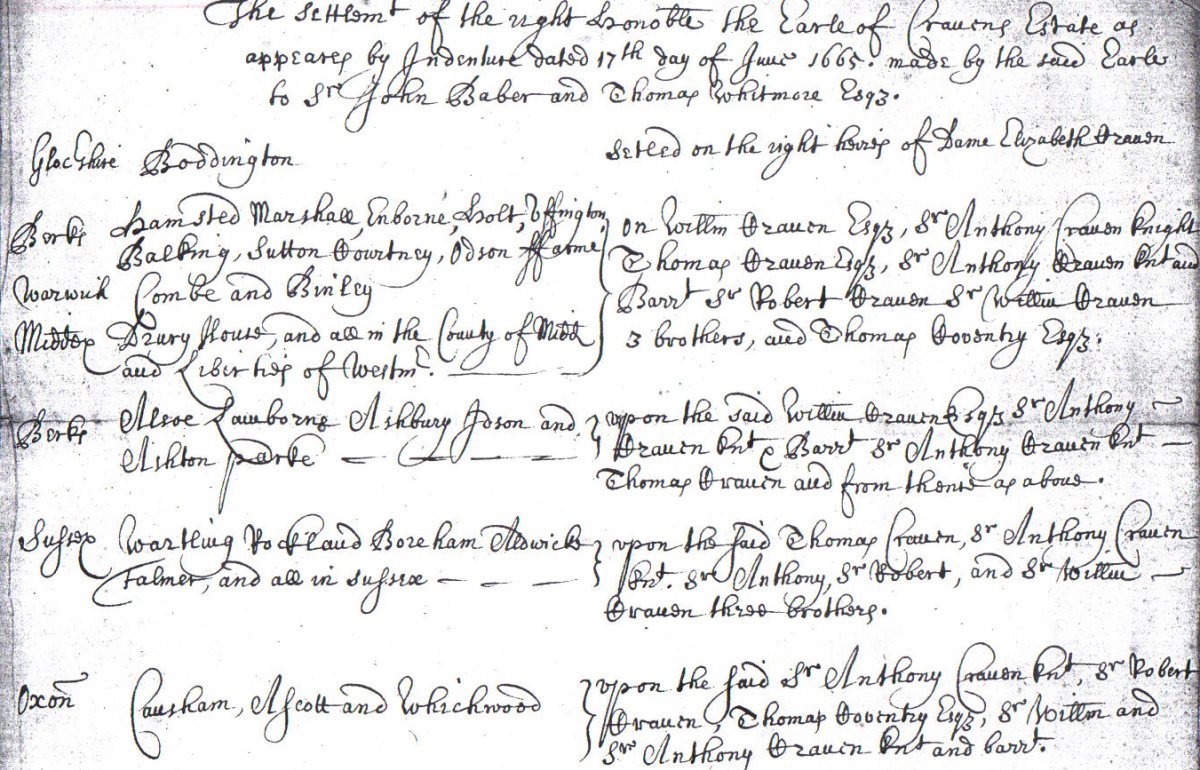 The Settlemt of the right honoble the Earle of Cravens Estate as
appeares by Indenture dated 17th day of June 1665. made by the said Earle
to Sr John Baber and Thomas Whitmore Esqz.
Glocshire Boddington settled on the right heires of Dame Elizabeth Craven
Berks Hamsted Marshall, Enborne, Holt, Uffington, on Willm Craven Esqz, Sr Anthony Craven knight
Balking, Sutton Courtney, Odson ffarme Thomas Craven Esqz, Sr Anthony Craven knt and
Warwick Combe and Binley Barrt Sr Robert Craven Sr Willm Craven
Middex Drury House, and all in the County of Midd 3 brothers, and Thomas Coventry Esqz.
and Liberties of Westmr.
Berks Alsoe Lamborne Ashbury Idson and upon the said Willm Craven Esqz Sr Anthony
Ashton Parke Craven knt & Barrt Sr Anthony Craven knt
Thomas Craven and from thence as above.
Sussex Wartling Rockland Boreham Aldwick upon the said Thomas Craven, Sr Anthony Craven
Falmer, and all in Sussex knt. Sr Anthony, Sr Robert, and Sr Willm
Craven three brothers.
Oxon Causham, Ascott and Whichwood upon the said Sr Anthony Craven knt, Sr Robert
Craven, Thomas Coventry Esqz, Sr Willm and
Sr Anthony Craven knt and barrt.